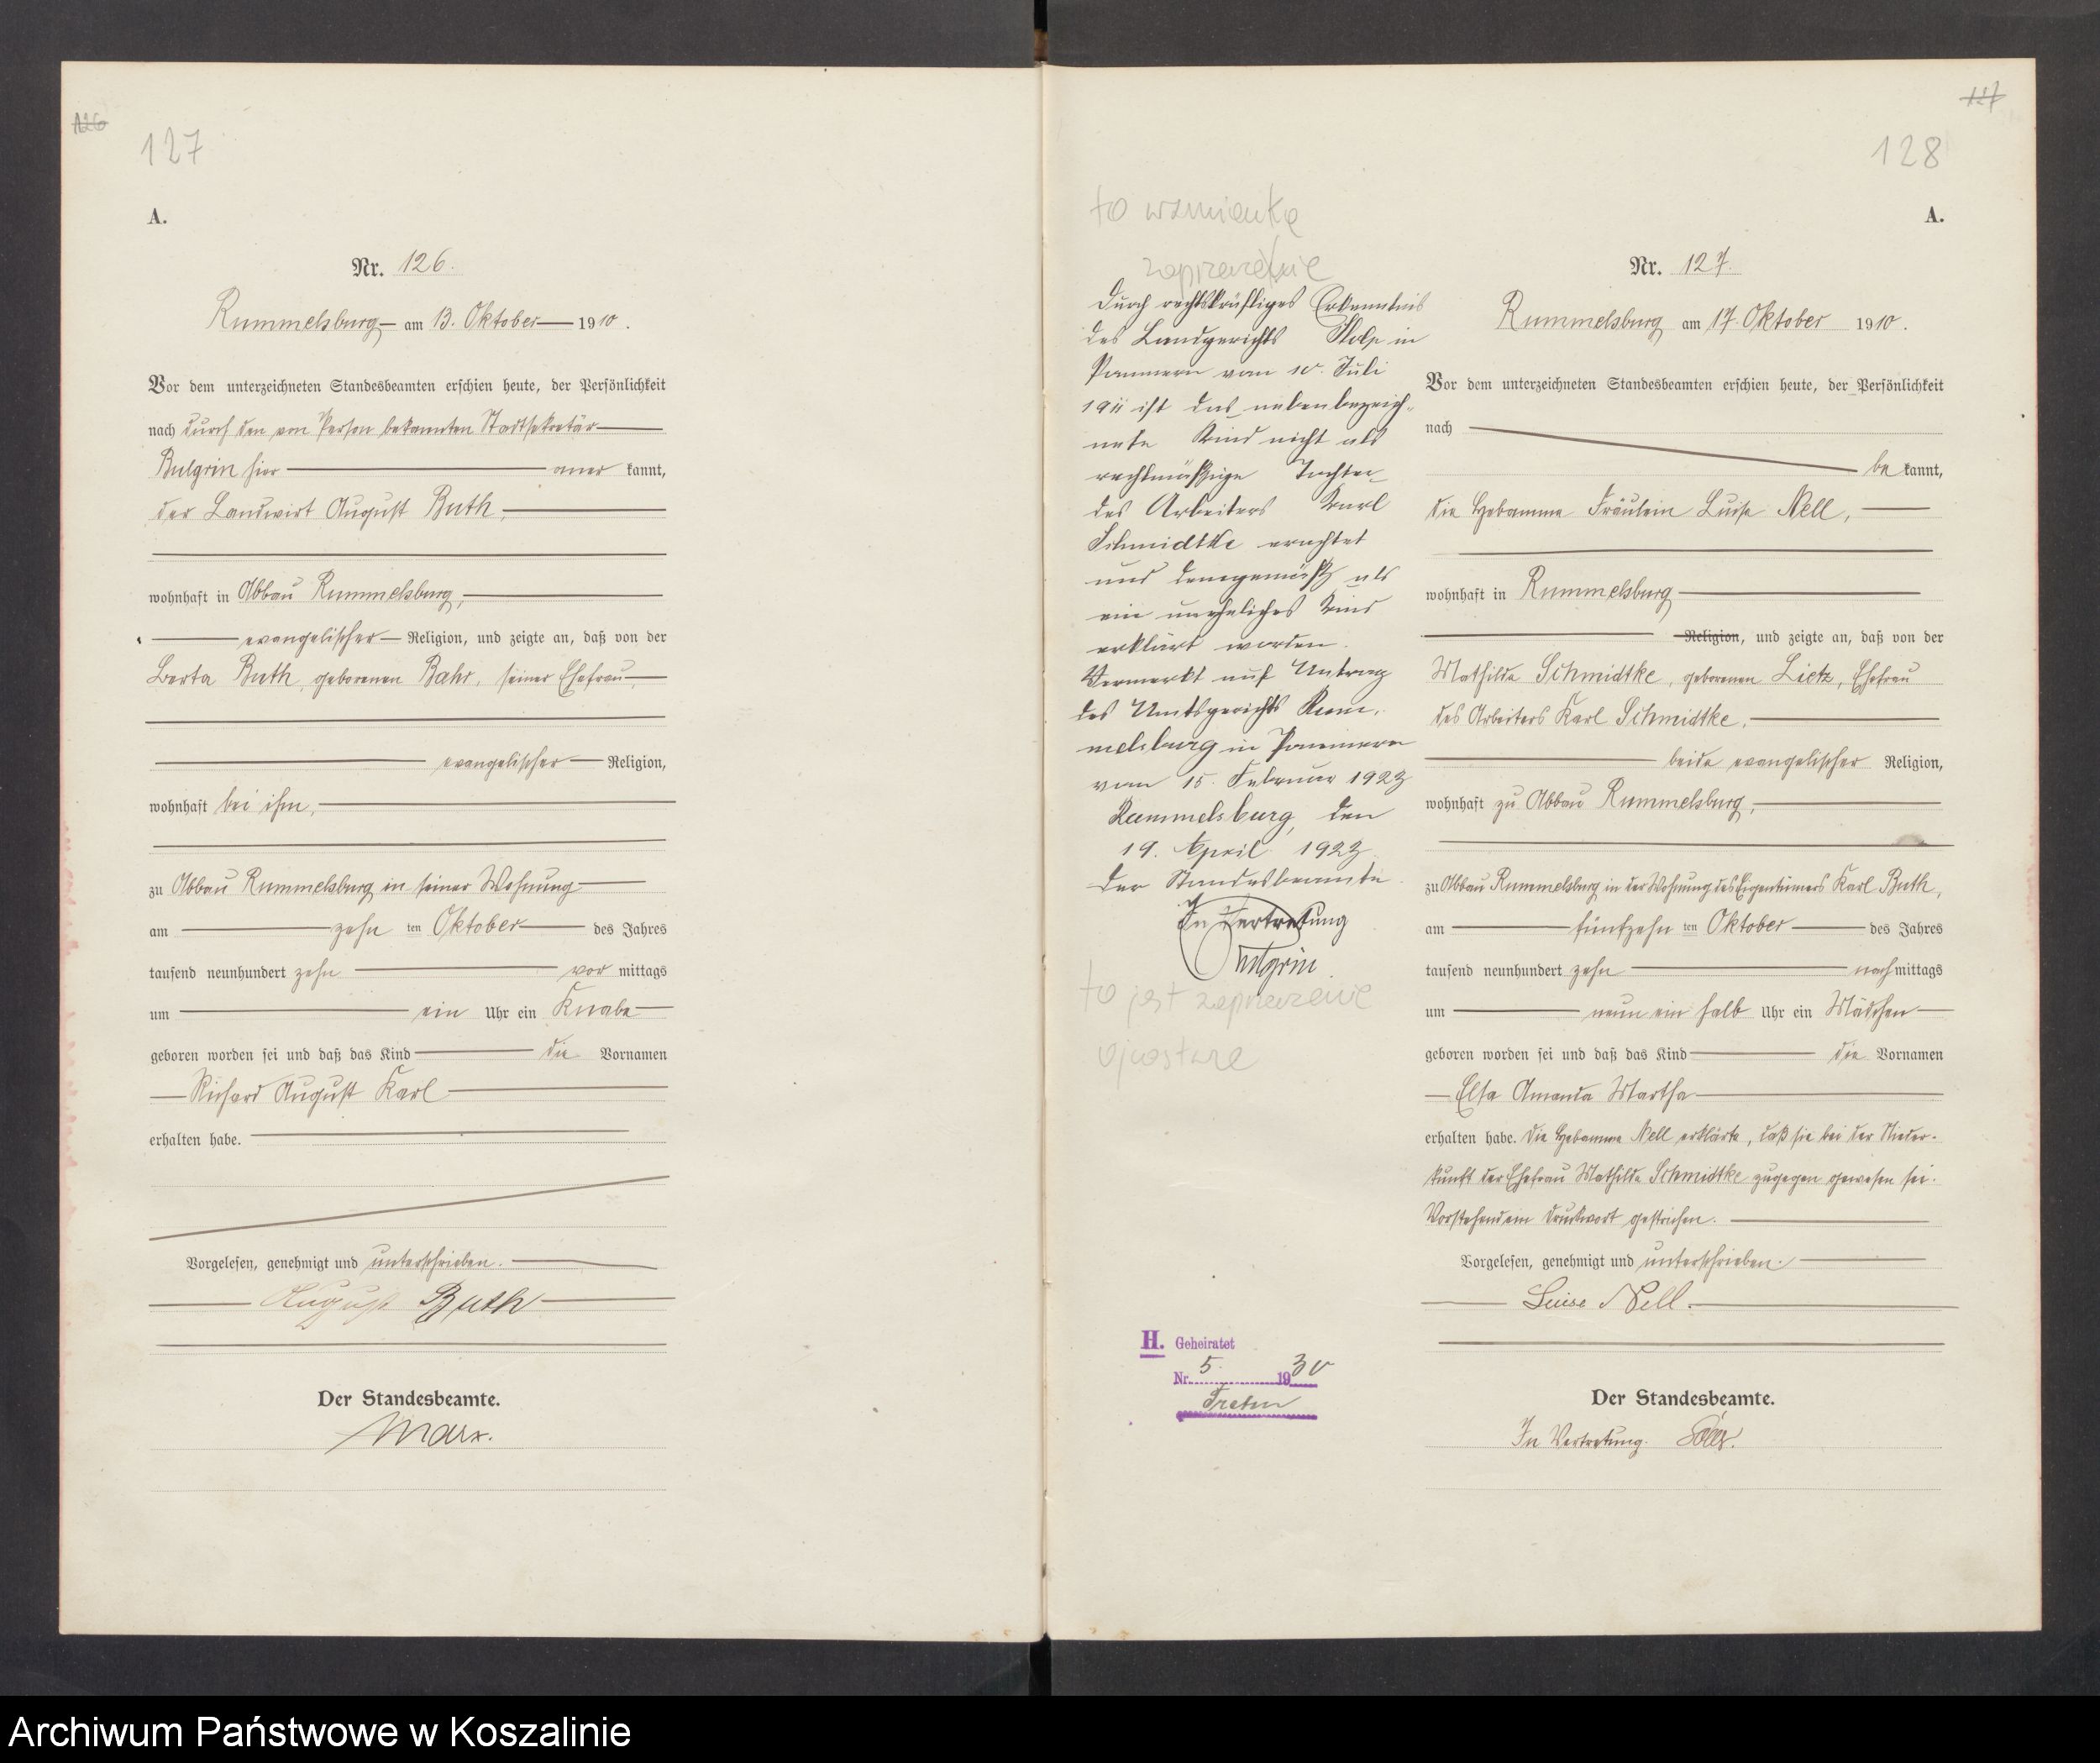 126
127
A.
Nr. 126.
Rummelsburg am 13. Oktober 1910.
Vor dem unterzeichneten Standesbeamten erschien heute, der Persönlichkeit
nach durch den von Person bekannten Stadtsekretär
Bulgrin hier aner kannt,
der Landwirt August Buth,
wohnhaft in Abbau Rummelsburg,
evangelischer Religion, und zeigte an, daß von der
Berta Buth, geborenen Bahr, seiner Ehefrau
evangelischer Religion,
wohnhaft bei ihm,
zu Abbau Rummelsburg in seiner Wohnung
am zehn ten Oktober des Jahres
tausend neunhundert zehn vor mittags
um ein Uhr ein Knabe
geboren worden sei und daß das Kind die Vornamen
Richard August Karl
erhalten habe.
Vorgelesen, genehmigt und unterschrieben.
August Buth
Der Standesbeamte.
Marx.
127
128
A.
to wzmianka
zaprzeczenie
Durch rechtskräftiges Erkenntnis
des Landgerichts Stolp in
Pommern vom 10. Juli
1911 ist das nebenbezeich-
nete Kind nicht als
rechtmäßige Tochter
des Arbeiters Karl
Schmidtke erachtet
und demgemäß als
ein uneheliches Kind
erklärt worden.
Vermerkt auf Antrag
des Amtsgerichts Rum-
melsburg in Pommern
vom 15. Februar 1923
Rummelsburg, den
19. April 1923
Der Standesbeamte
In Vertretung
Bulgrin.
to jest zaprzeczenie
ojcostwa
H. Geheiratet
Nr. 5. 1930
Treten
Nr. 127.
Rummelsburg am 17. Oktober 1910.
Vor dem unterzeichneten Standesbeamten erschien heute, der Persönlichkeit
nach
be kannt,
die Hebamme Fräulein Luise Nell,
wohnhaft in Rummelsburg
Religion, und zeigte an, daß von der
Mathilde Schmidtke, geborenen Lietz, Ehefrau
des Arbeiters Karl Schmidtke,
beide evangelischer Religion,
wohnhaft zu Abbau Rummelsburg,
zu Abbau Rummelsburg in der Wohnung des Eigentümers Karl Buth,
am fünfzehn ten Oktober des Jahres
tausend neunhundert zehn nach mittags
um neun ein halb Uhr ein Mädchen
geboren worden sei und daß das Kind die Vornamen
Elsa Amanda Martha
erhalten habe. Die Hebamme Nell erklärte, daß sie bei der Nieder-
kunft der Ehefrau Mathilde Schmidtke zugegen gewesen sei.
Vorstehend ein Druckwort gestrichen.
Vorgelesen, genehmigt und unterschrieben.
Luise Nell.
Der Standesbeamte.
In Vertretung.
Archiwum Państwowe w Koszalinie